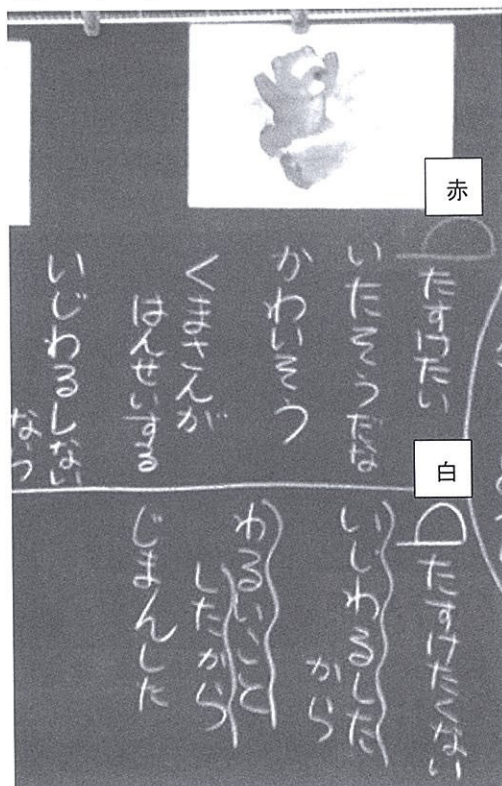 赤
たすけたい
いたそうだな
かわいそう
くまさんが
はんせいする
いじわるしない
白
たすけたくない
いじわるした
から
わるいこと
したから
じまんした